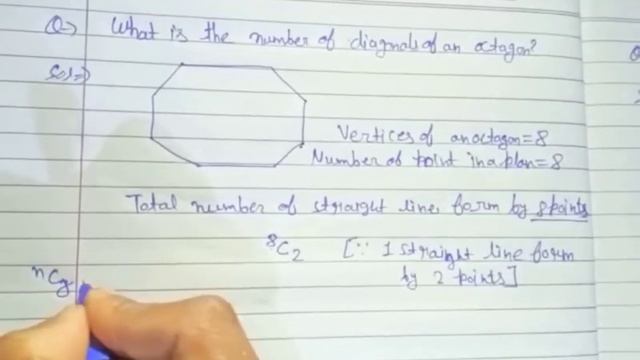 Q) What is the number of diagonals of an octagon?
Sol⇒
Vertices of an octagon = 8
Number of point in a plan = 8
Total number of straight line form by 8 points
⁸C₂ [∵ 1 straight line form
by 2 points]
ⁿCᵣ